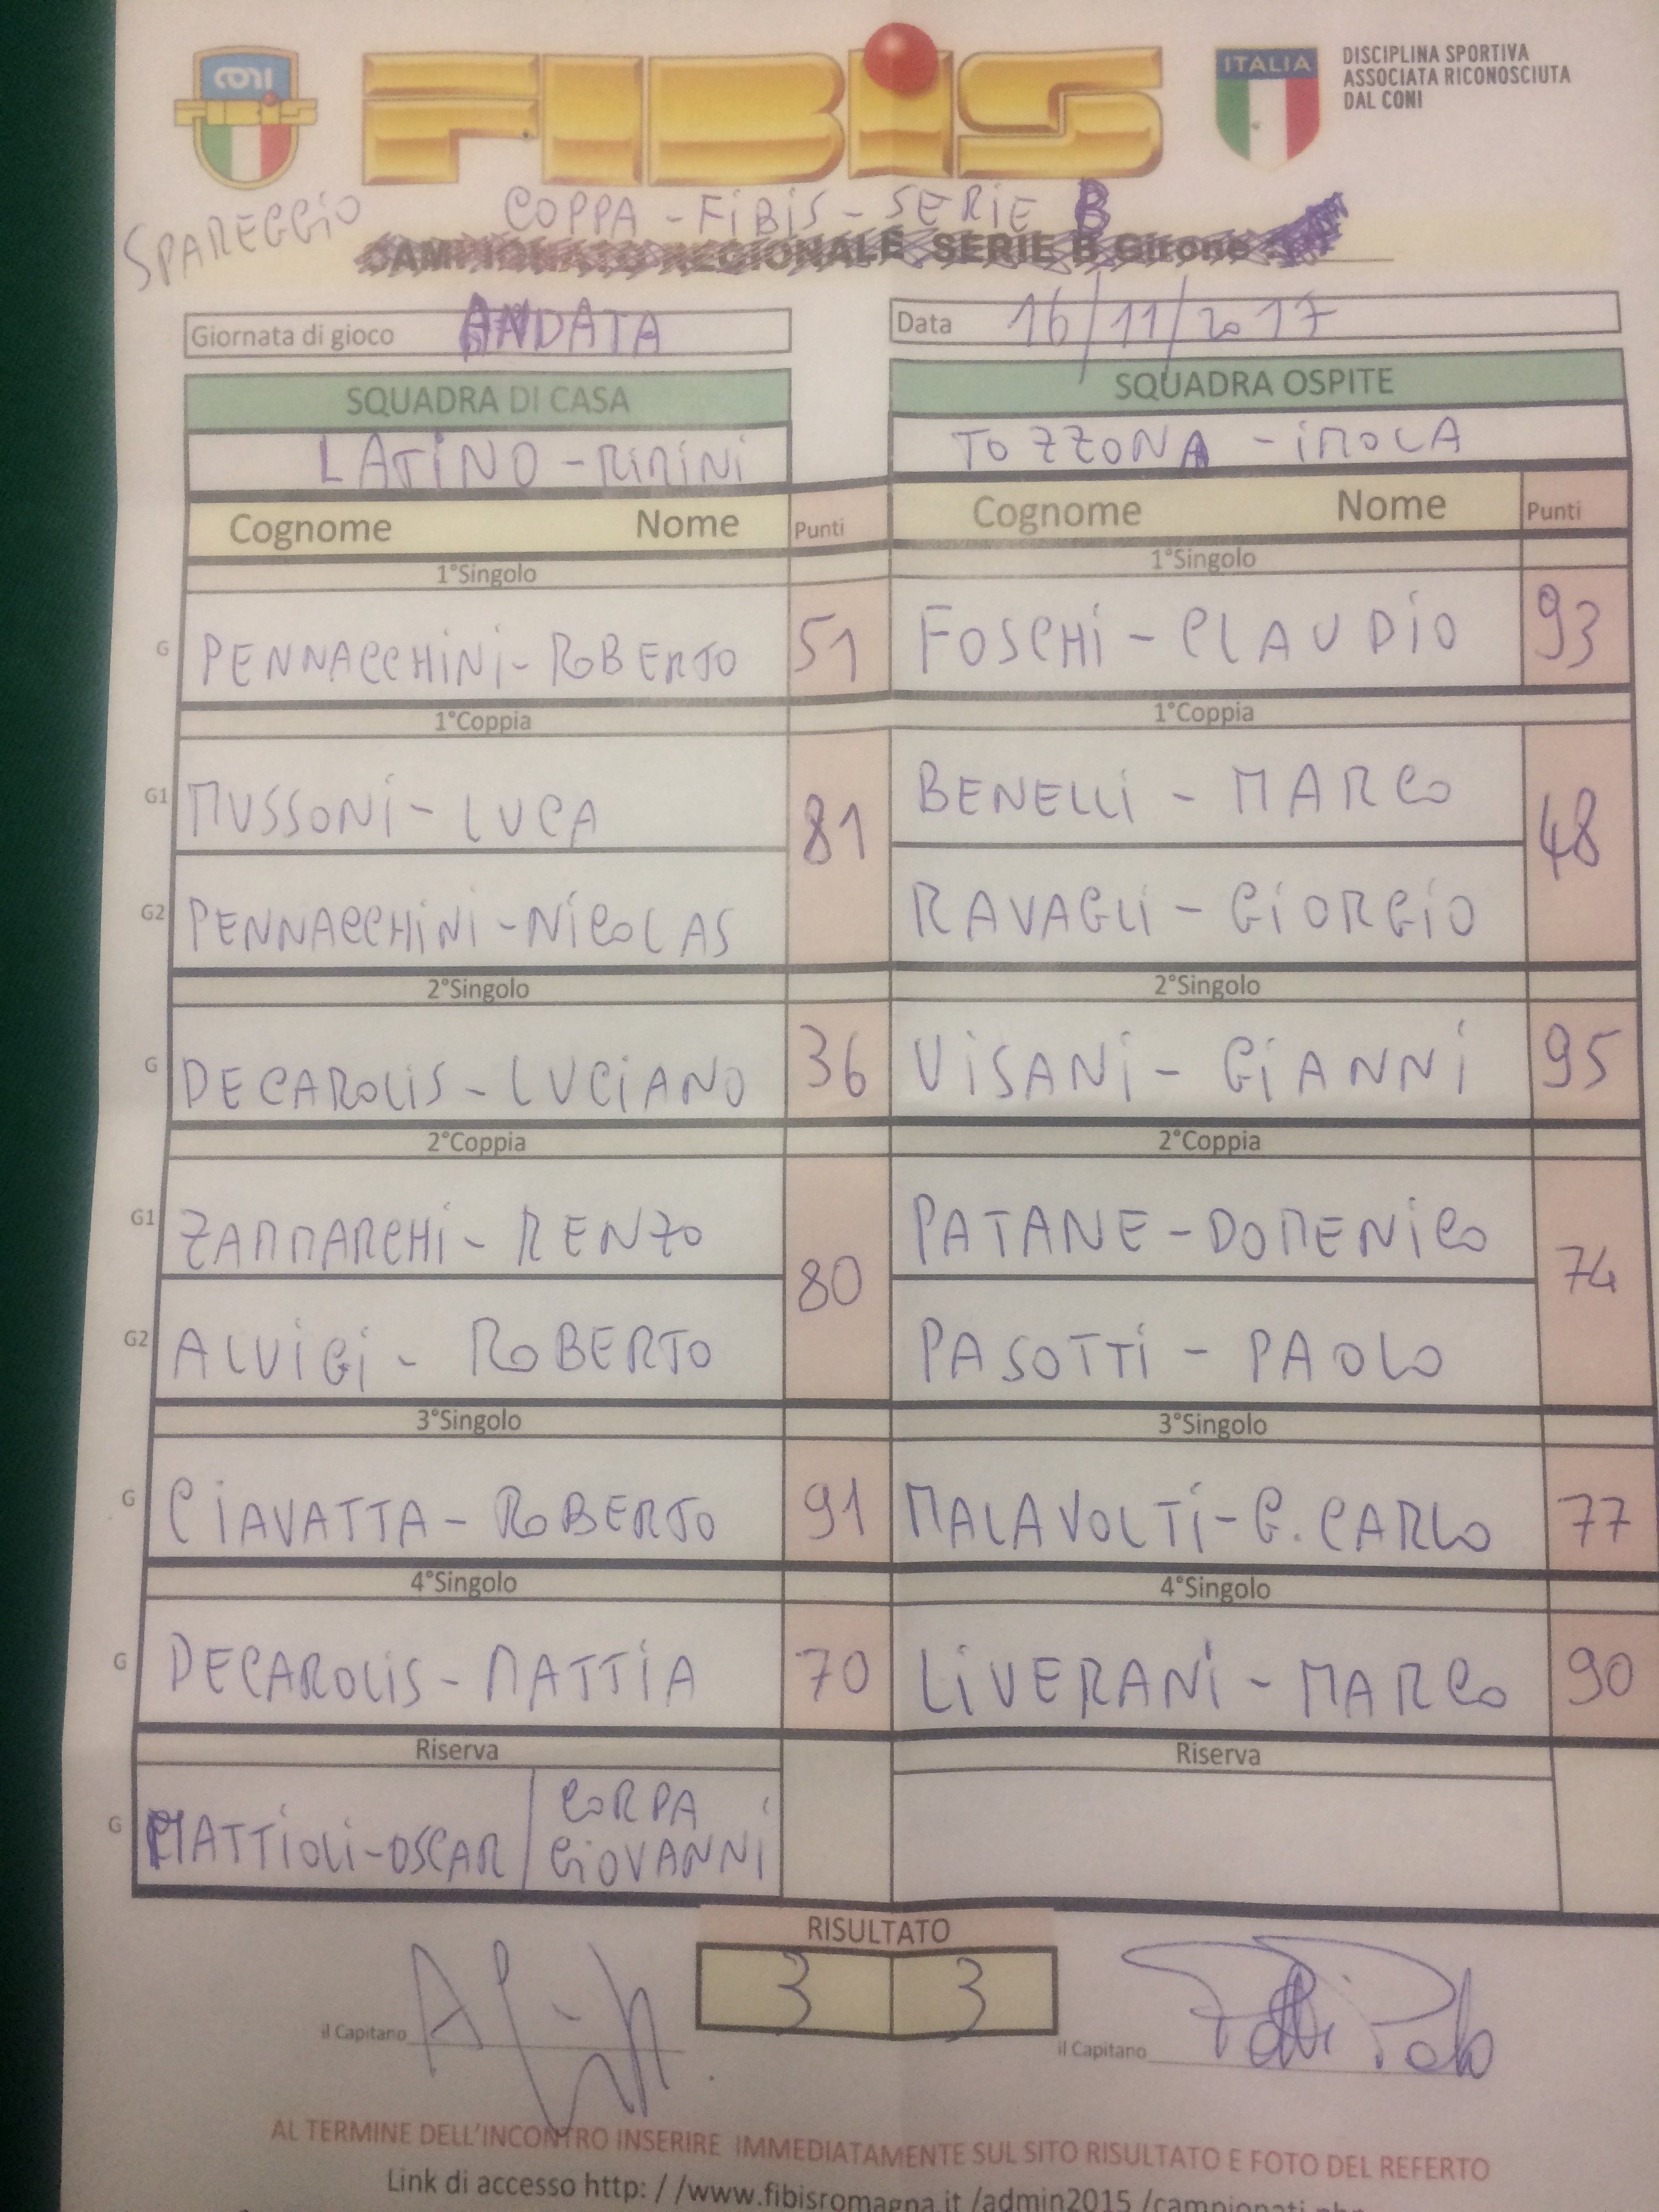 CONI
FIBIS
FIBIS
ITALIA
DISCIPLINA SPORTIVA
ASSOCIATA RICONOSCIUTA
DAL CONI
SPAREGGIO
COPPA - FIBIS - SERIE B
CAMPIONATO REGIONALE SERIE B Girone
Giornata di gioco ANDATA
Data 16/11/2017
SQUADRA DI CASA
SQUADRA OSPITE
LATINO - RIMINI
TOZZONA - IMOLA
Cognome Nome Punti Cognome Nome Punti
1°Singolo 1°Singolo
G PENNACCHINI - ROBERTO 51 FOSCHI - CLAUDIO 93
1°Coppia 1°Coppia
G1 MUSSONI - LUCA 81 BENELLI - MARCO 48
G2 PENNACCHINI - NICOLAS RAVAGLI - GIORGIO
2°Singolo 2°Singolo
G DECAROLIS - LUCIANO 36 VISANI - GIANNI 95
2°Coppia 2°Coppia
G1 ZAMMARCHI - RENZO 80 PATANE - DOMENICO 74
G2 ALUIGI - ROBERTO PASOTTI - PAOLO
3°Singolo 3°Singolo
G CIAVATTA - ROBERTO 91 MALAVOLTI - G. CARLO 77
4°Singolo 4°Singolo
G DECAROLIS - MATTIA 70 LIVERANI - MARCO 90
Riserva Riserva
G MATTIOLI - OSCAR / CORPA
GIOVANNI
RISULTATO
3 3
il Capitano
il Capitano
AL TERMINE DELL'INCONTRO INSERIRE IMMEDIATAMENTE SUL SITO RISULTATO E FOTO DEL REFERTO
Link di accesso http: / /www.fibisromagna.it /admin2015 /campionati.php